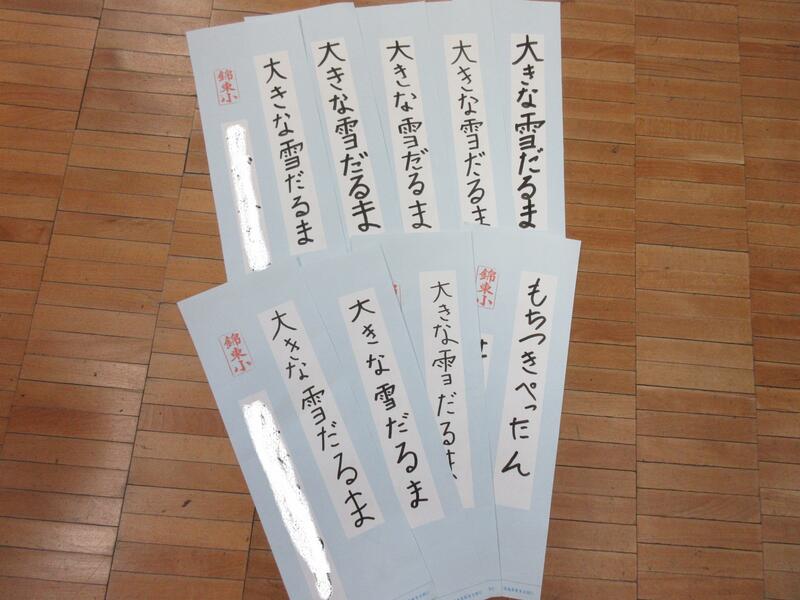 大きな雪だるま
大きな雪だるま
大きな雪だるま
大きな雪だるま
大きな雪だるま
錦東小
もちつきぺったん
錦東小
大きな雪だるま
大きな雪だるま
大きな雪だるま
錦東小